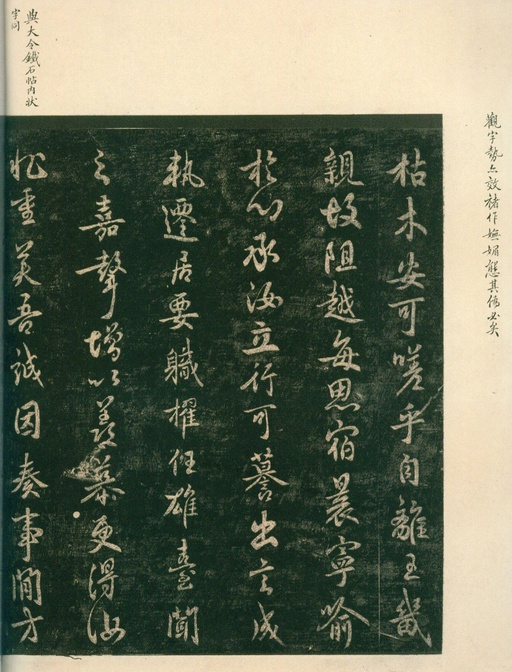 觀字勢亦效褚作嫵媚態其偽必矣
枯木安可嗟乎自離王畿
親故阻越每思宿晨寧喻
於心承汝立行可謩出言成
執遷居要職擢任雄臺聞
之嘉聲增以羨慕更得汝
重美吾誠因奏事閒才
與大令鐵石帖內狀
字同